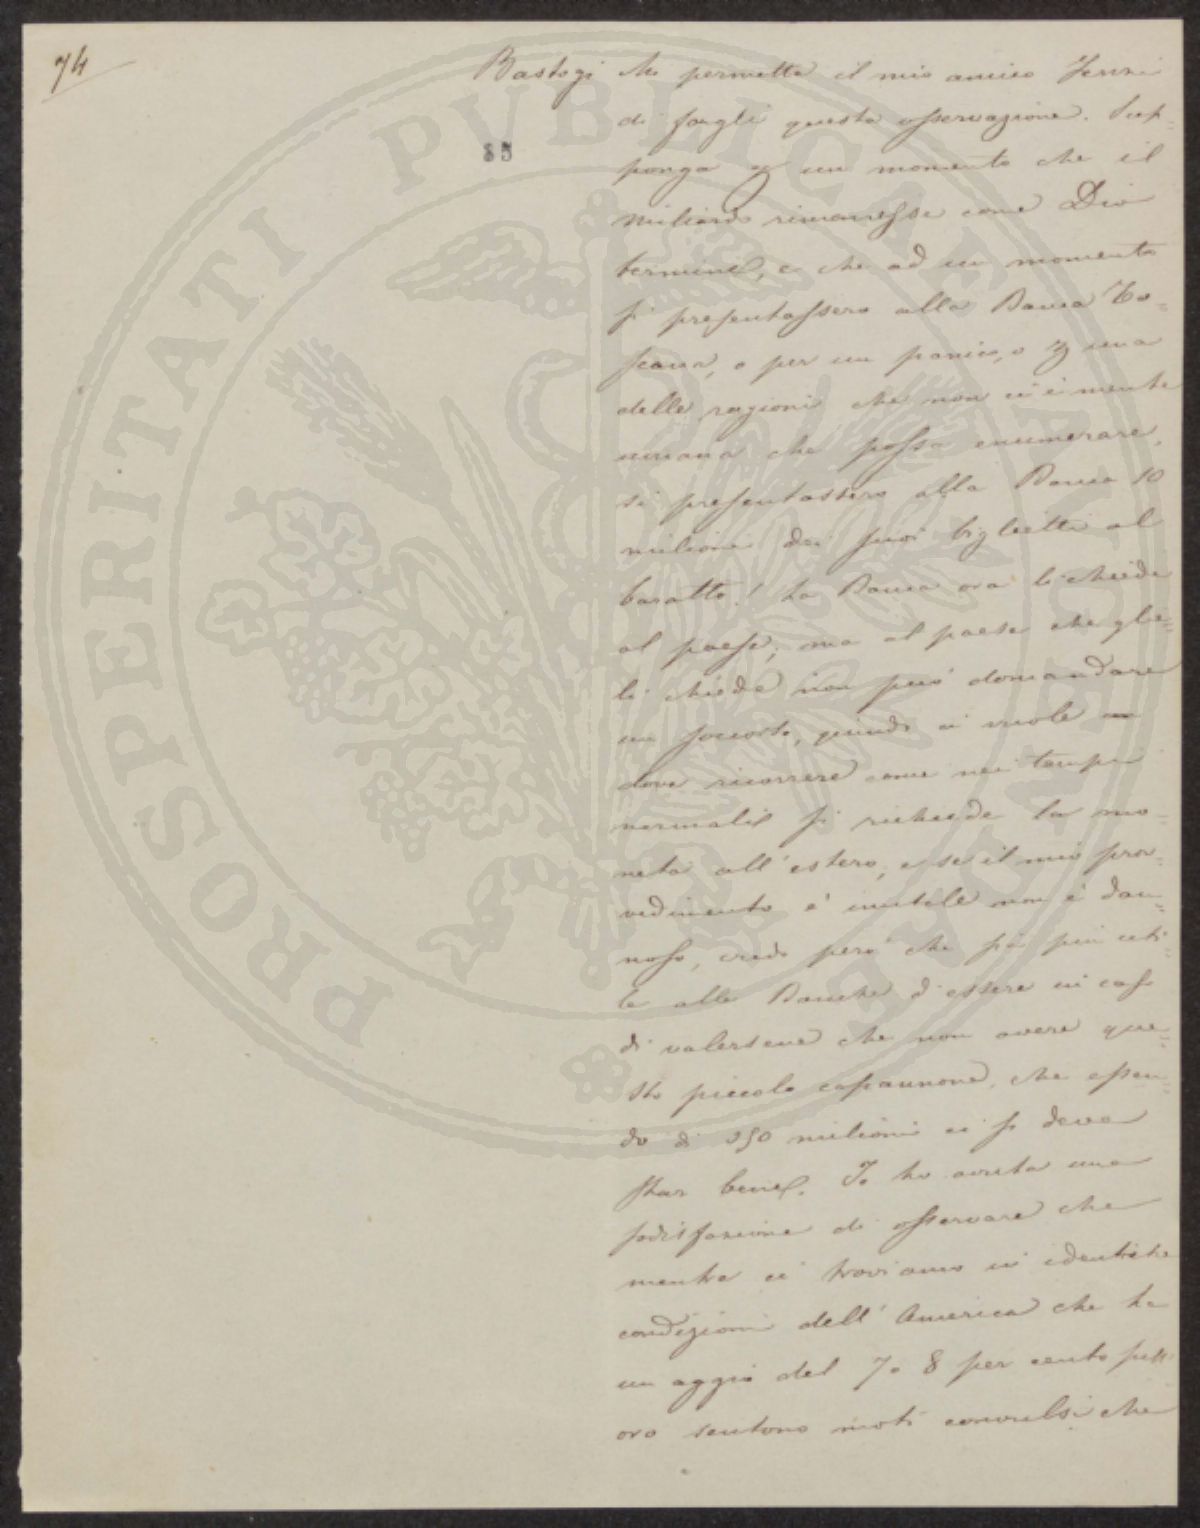 74
85
Bastogi Mi permetta il mio amico Fenzi
di fargli questa osservazione. Sup-
ponga p un momento che il
miliardo rimanesse come Dio
termine, e che ad un momento
si presentassero alla Banca To-
scana, o per un panico, o p una
delle ragioni che non vi è mente
umana che possa enumerare,
si presentassero alla Banca 10
milioni dei suoi biglietti al
baratto! La Banca ora li chiede
al paese; ma al paese che glie-
li chiede non può domandare
un soccorso, quindi si vuole
dove ricorrere come nei tempi
normali si richiede la mo-
neta all'estero, e se il mio prov-
vedimento è inutile non è dan-
noso, credo però che sia più uti-
le alle Banche d'essere in caso
di valersene che non avere que-
sto piccolo capannone, che essen-
do di 150 milioni ci si deve
star bene. Io ho avuta una
sodisfazione di osservare che
mentre ci troviamo in identiche
condizioni dell'America che ha
un aggio del 7 o 8 per cento sull'
oro sentono moti convulsi che
PROSPERITATI PVBLICAE AVGENDAE